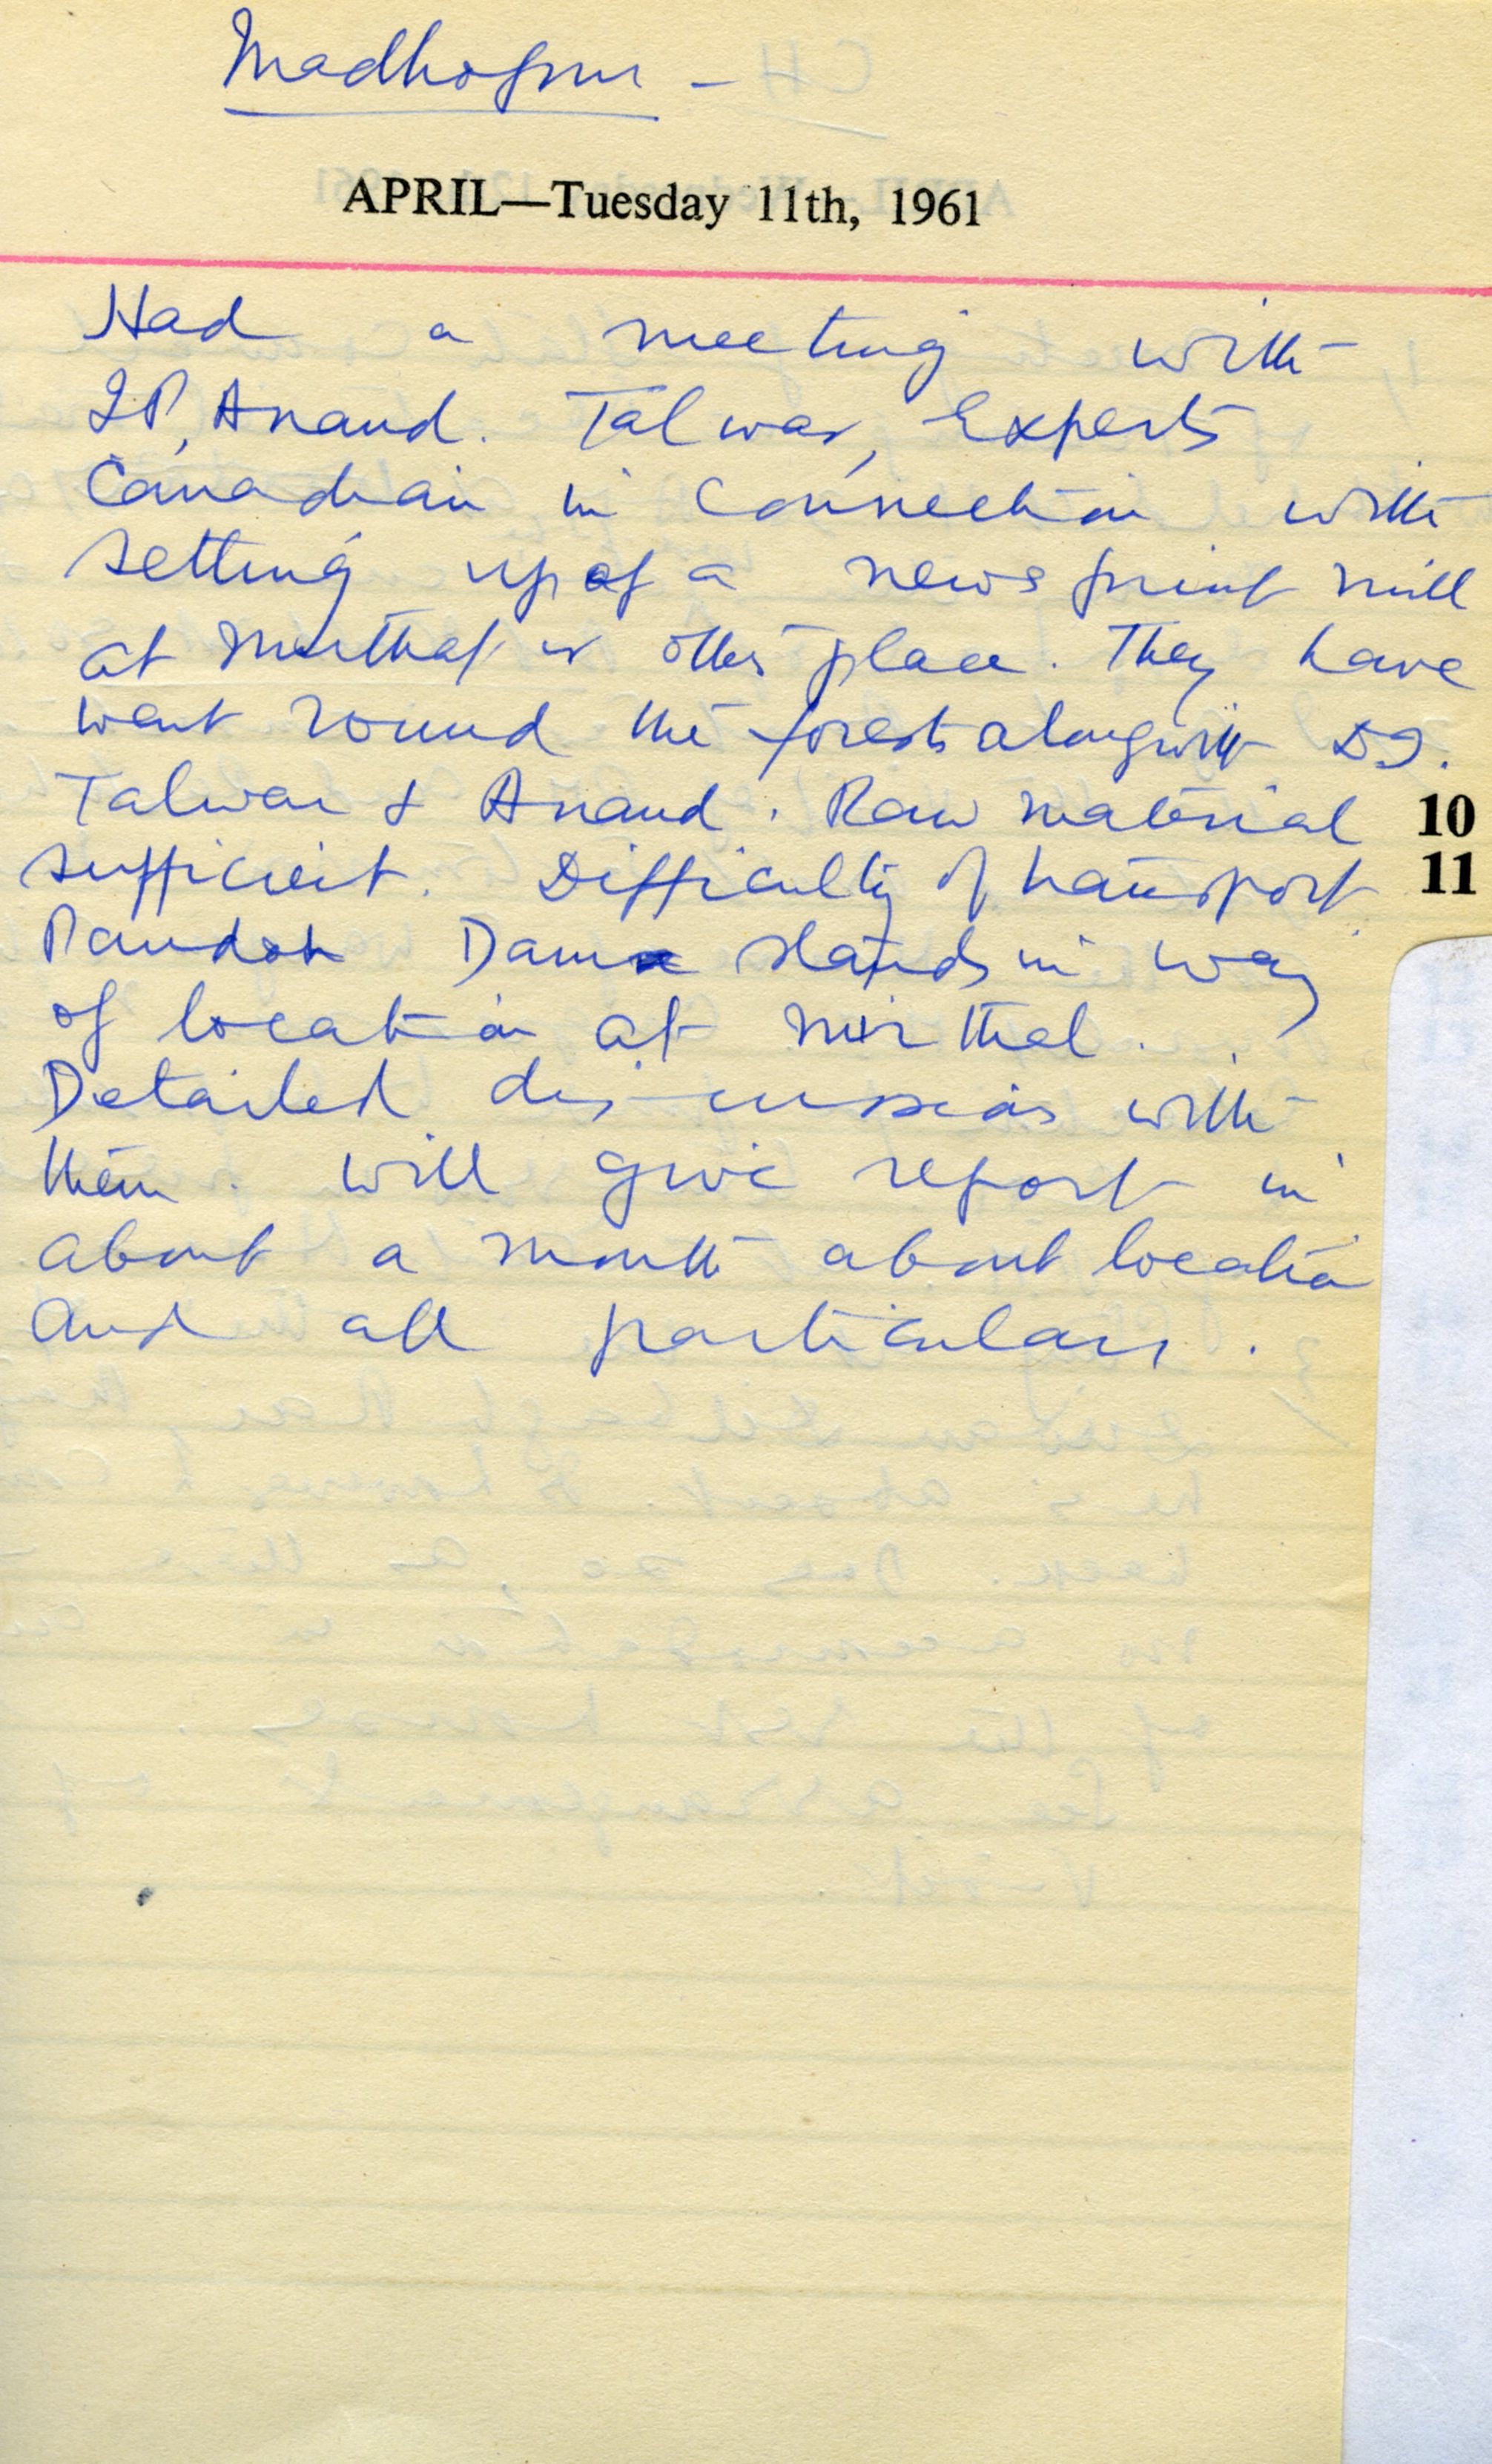 Madhopur -
APRIL—Tuesday 11th, 1961
Had a meeting with
I.P, Anand. Talwar, Experts
Canadian in Connection with
setting up of a news print mill
at Mirthal or other place. They have
went round the forests alongwith DI.
Talwar & Anand. Raw material
sufficient. Difficulty of transport
Pandoh Dam stands in way
of location at Mirthal.
Detailed discussions with
them. Will give report in
about a month about location
and all particulars.
10
11